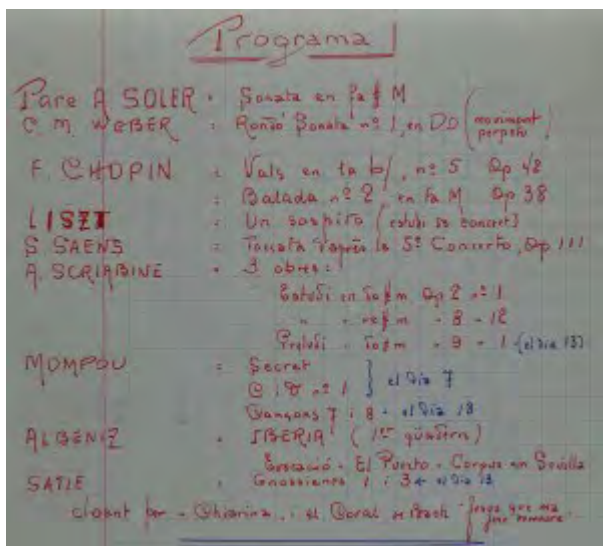 Programa
Pare A SOLER : Sonata en fa # M
C. M. WEBER : Rondó Sonata nº 1, en DO (moviment perpetu)
F. CHOPIN : Vals en la b, nº 5 Op 42
: Balada nº 2, en Fa M Op 38
LISZT : Un sospiro (estudi de concert)
S. SAENS : Toccata d'après le 5è Concerto, Op 111
A. SCRIABINE : 3 obres:
Estudi en Do#m Op 2 nº 1
" - re#m - 8 - 12
Preludi - Do#m - 9 - 1 (el dia 13)
MOMPOU : Secret
C i D nº 1 } el dia 7
Cançons 7 i 8 - el dia 13
ALBENIZ : IBERIA (1er quadern)
Evocació - El Puerto - Corpus en Sevilla
SATIE : Gnossienes 1 i 3 el dia 13
cloent - Chiarina, i el Coral de Bach "Jesús que ma